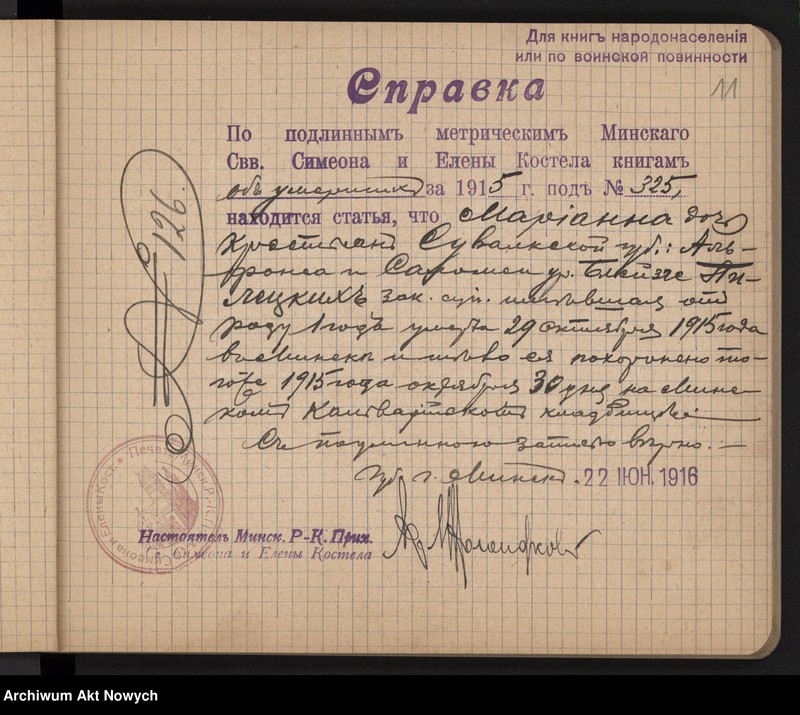 Для книгъ народонаселенія
или по воинской повинности
11
Справка
По подлиннымъ метрическимъ Минскаго
Свв. Симеона и Елены Костела книгамъ
объ умершихъ за 1915 г. подъ № 325,
находится статья, что Маріанна дочь
крестьянъ Сувалкской губ.: Аль-
фонса и Саломеи ур. Пи-
лецкихъ зак. суп. имѣвшая отъ
роду 1 годъ умерла 29 октября 1915 года
въ Минскѣ и тѣло ея похоронено то-
гоже 1915 года октября 30 дня на Минс-
комъ Кальварійскомъ кладбищѣ.—
Съ подлинною записью вѣрно.—
г. Минскъ. 22 ІЮН. 1916
Настоятель Минск. Р-К. Прих.
Св. Симеона и Елены Костела
926.
Archiwum Akt Nowych